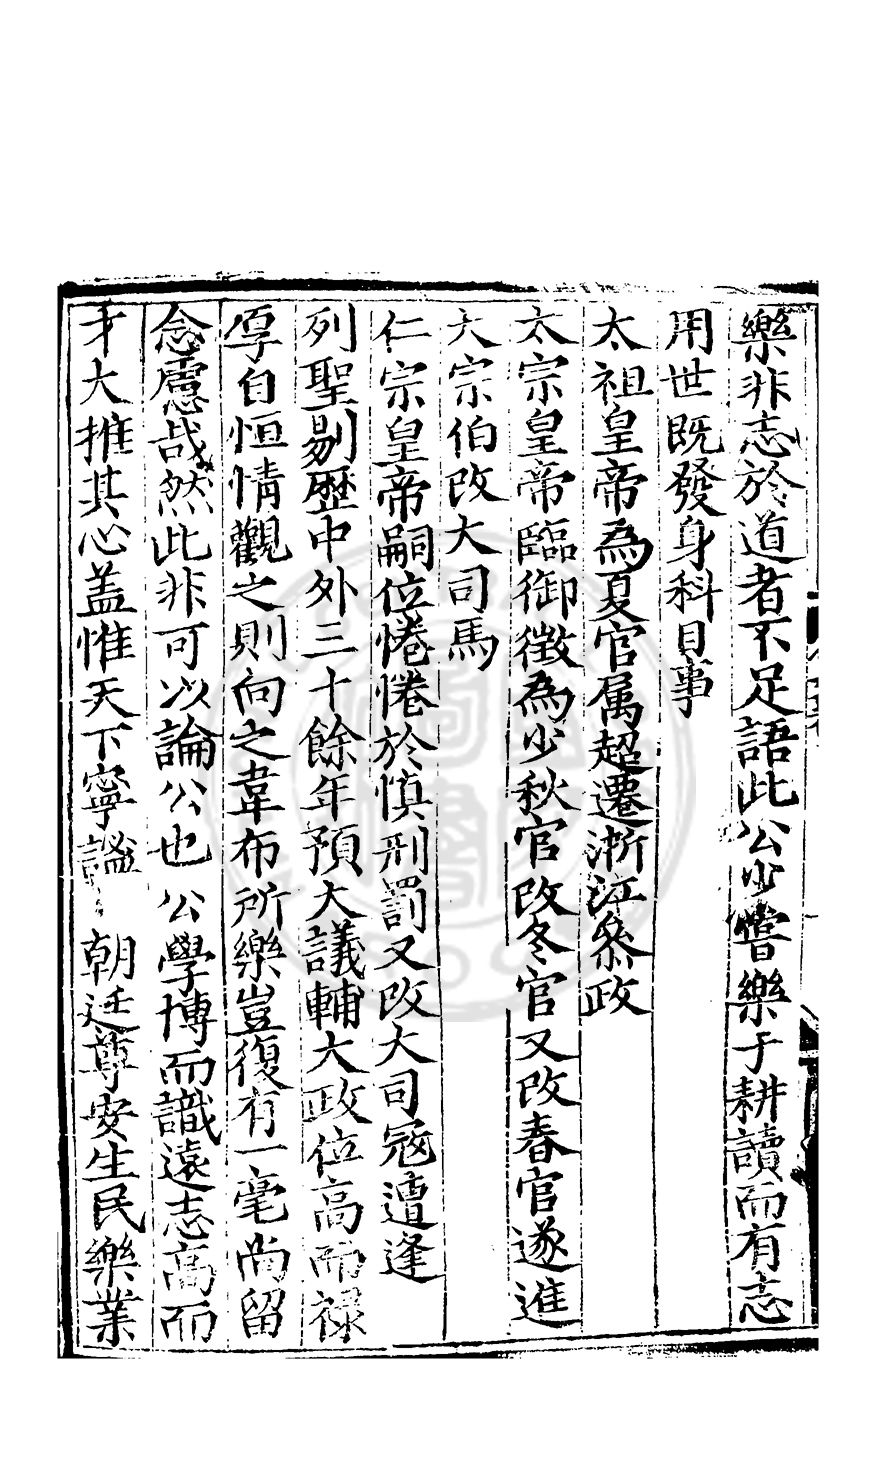 樂非志於道者不足語此公少嘗樂于耕讀而有志
用世既發身科目事
太祖皇帝為夏官属超遷浙江叅政
太宗皇帝臨御徵為少秋官改冬官又改春官遂進
大宗伯改大司馬
仁宗皇帝嗣位惓惓於慎刑罰又改大司冦遭逢
列聖剔歷中外三十餘年預大議輔大政位高而禄
厚自恒情觀之則向之韋布所樂豈復有一毫尚留
念慮哉然此非可以論公也公學博而識遠志高而
才大推其心盖惟天下寧謐朝廷尊安生民樂業